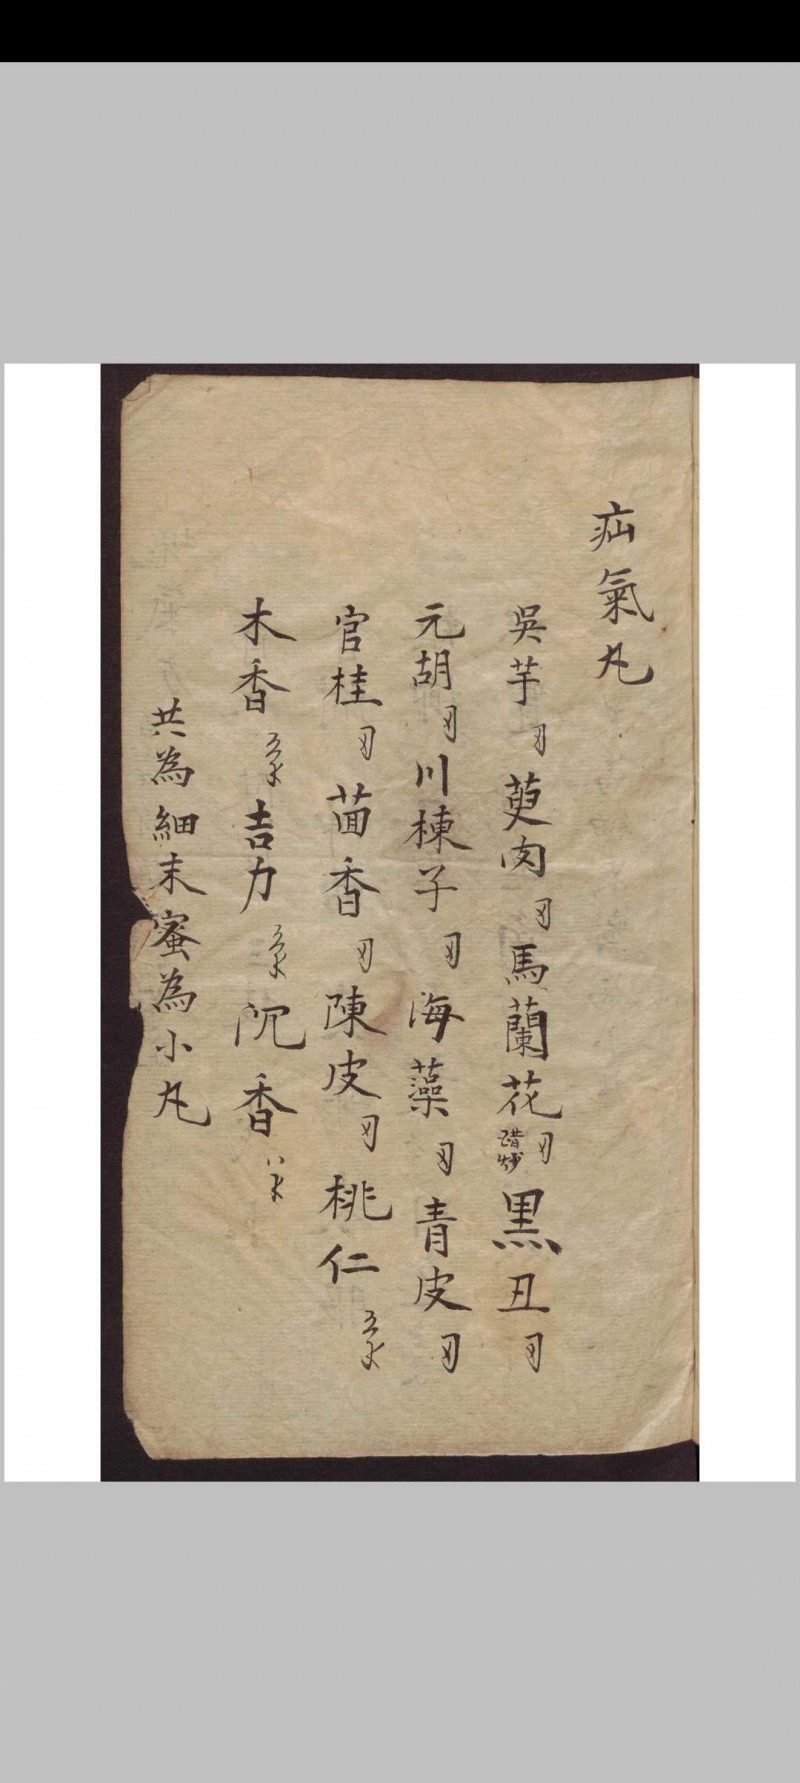 疝氣丸
吳芋 萸肉 馬蘭花 醋炒 黑丑
元胡 川楝子 海藻 青皮
官桂 茴香 陳皮 桃仁
木香 吉力 沉香
共為細末蜜為小丸